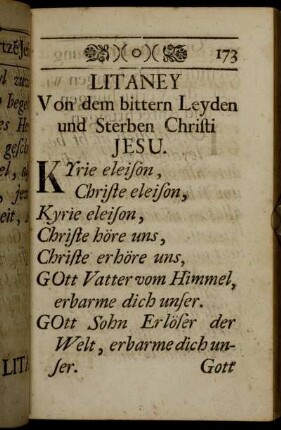 173
LITANEY
Von dem bittern Leyden
und Sterben Chriſti
JESU.
KYrie eleiſon,
Chriſte eleiſon,
Kyrie eleiſon,
Chriſte höre uns,
Chriſte erhöre uns,
GOtt Vatter vom Himmel,
erbarme dich unſer.
GOtt Sohn Erlöſer der
Welt, erbarme dich un-
ſer. Gott